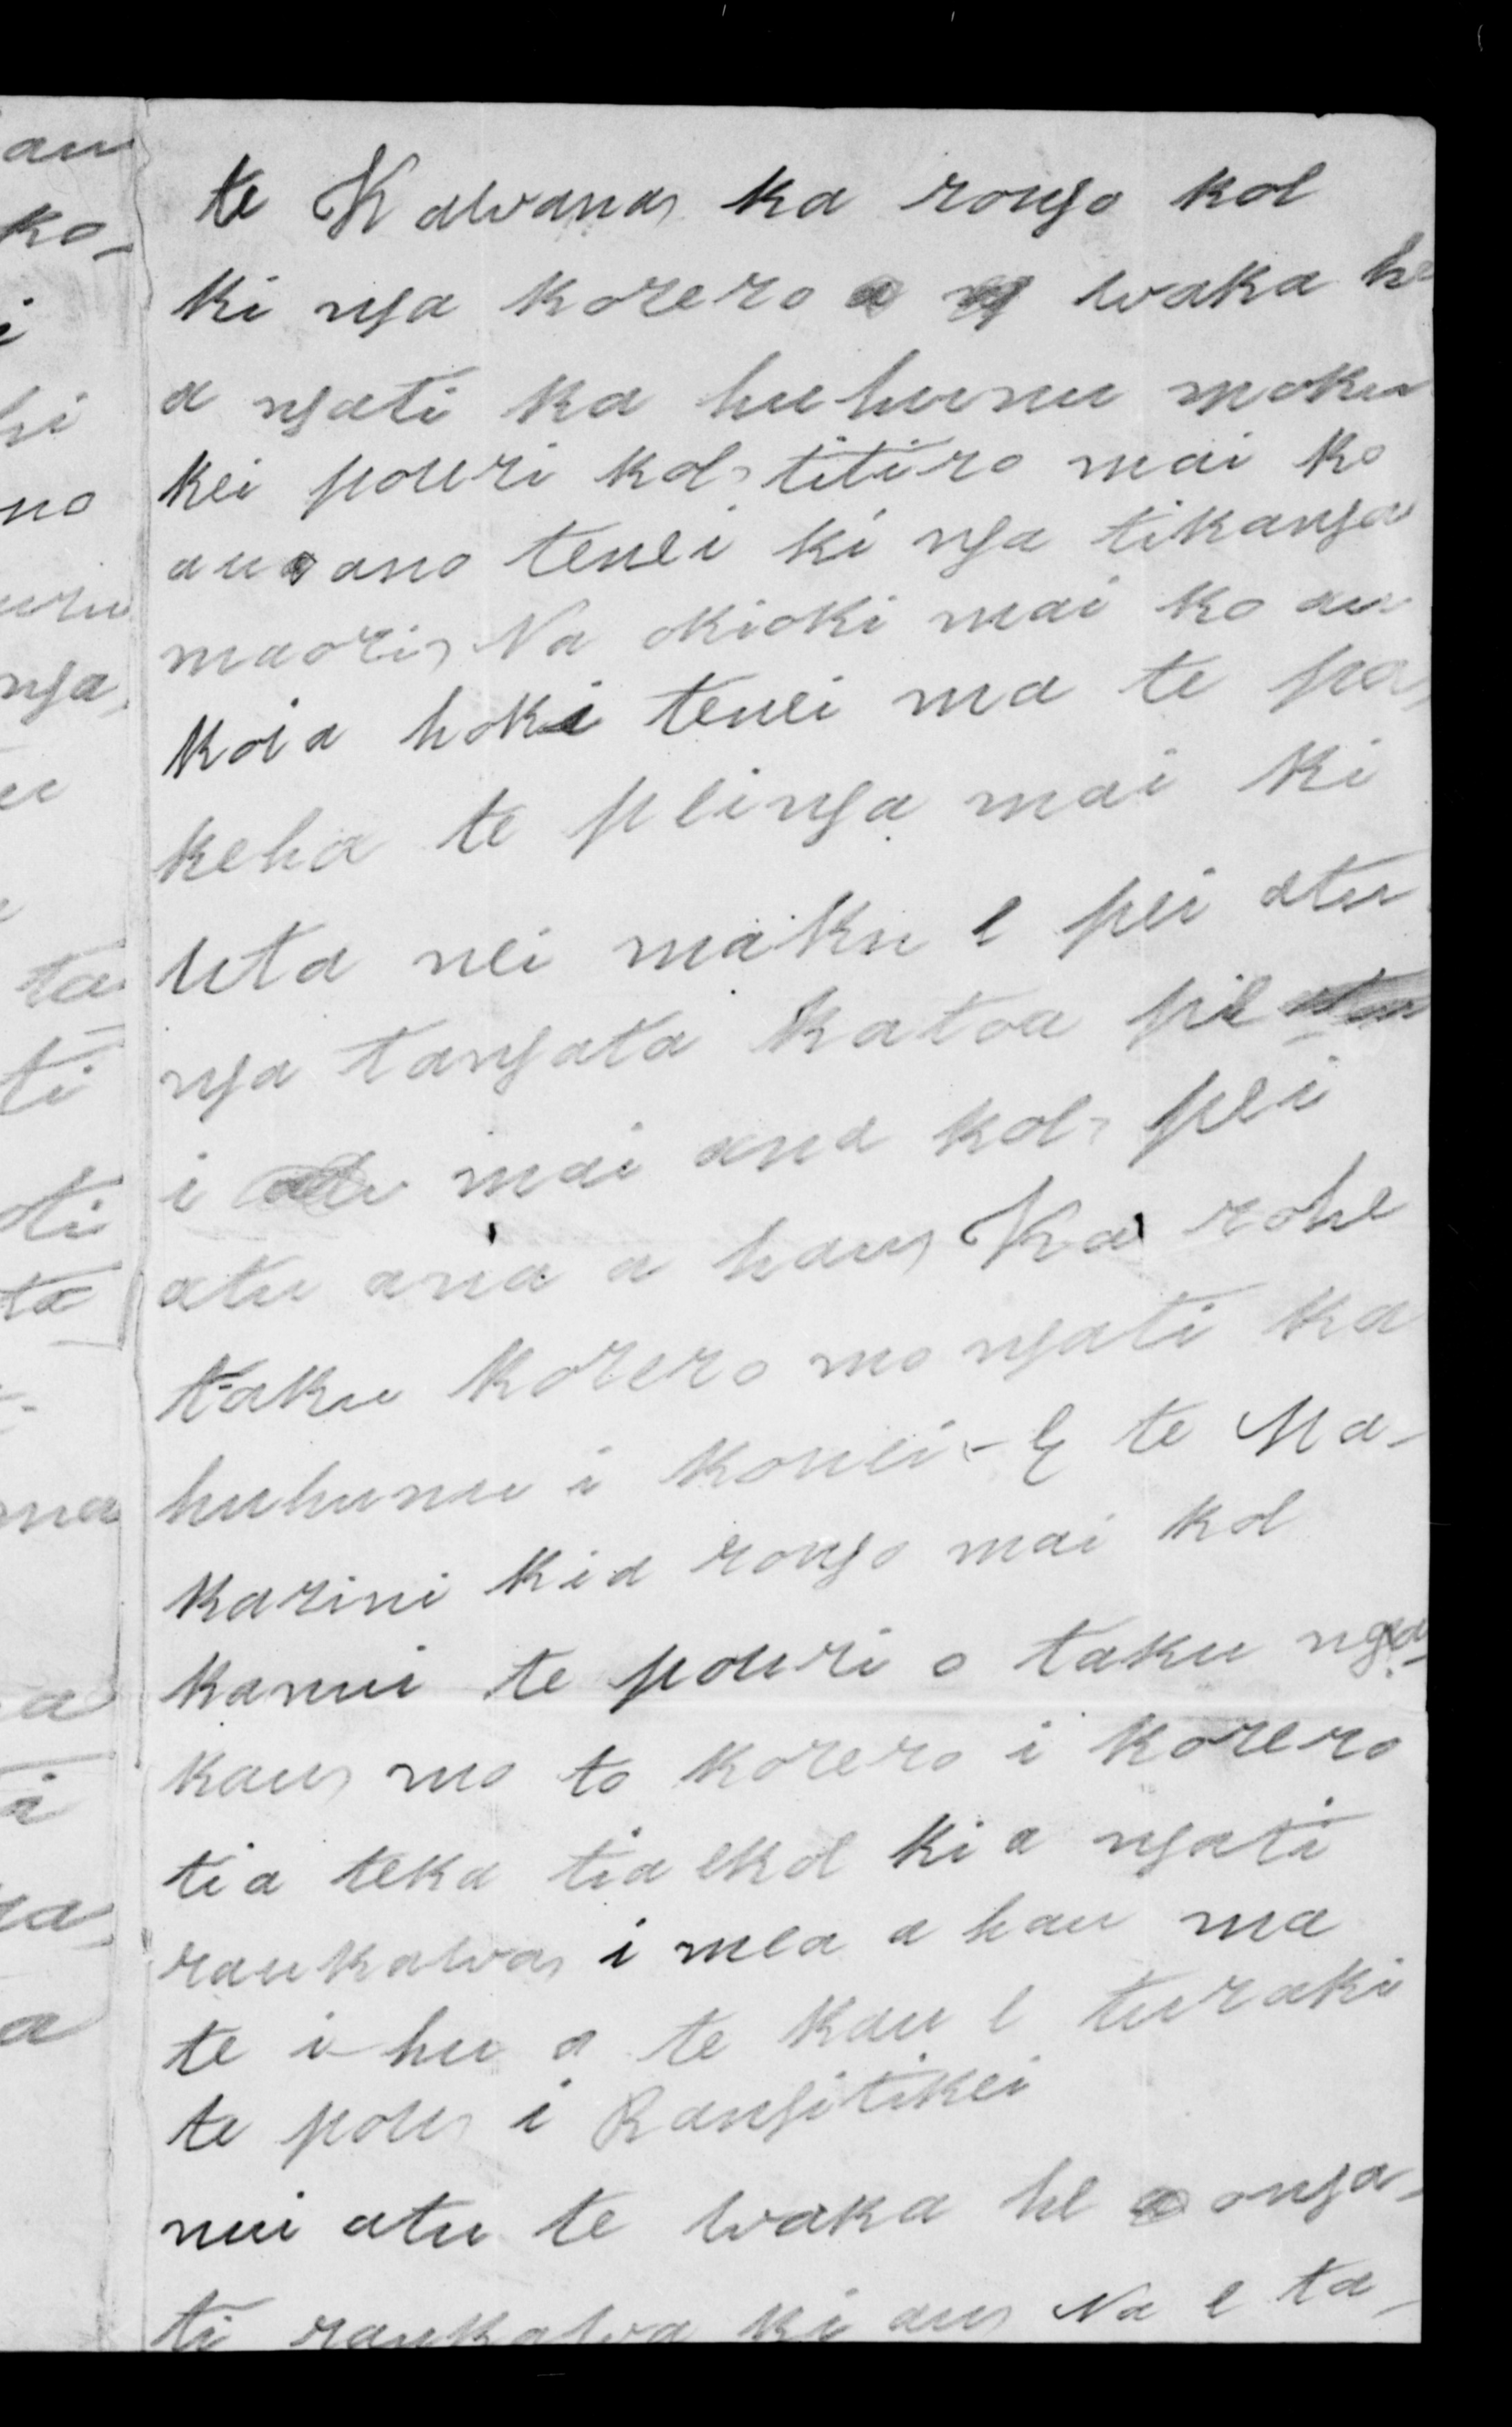 te Kawana, ka rongo koe
ki nga korero a waka he
a ngati ka huhunu moku
kei pouri koe, titiro mai ko
au ano tenei ki nga tikanga
maori, Na okioki mai ko au
koia hoki tenei ma te pa,
keha te peinga mai ki
uta nei maku e pei atu
nga tangata katoa pe
i mai ana koe, pei
atu ana a hau, Ka rohe
taku korero mo ngati ka
huhunu i konei - E te Ma-
karini kia rongo mai koe
kanui te pouri o taku nga-
kau, mo to korero i korero
tia teka tia ekoe ki a ngati
raukawa, i mea a hau ma
te i-hu o te kau e turaki
te pou, i Rangitikei
nui atu te waka he o nga-
ti raukawa ki au, Na e ta-